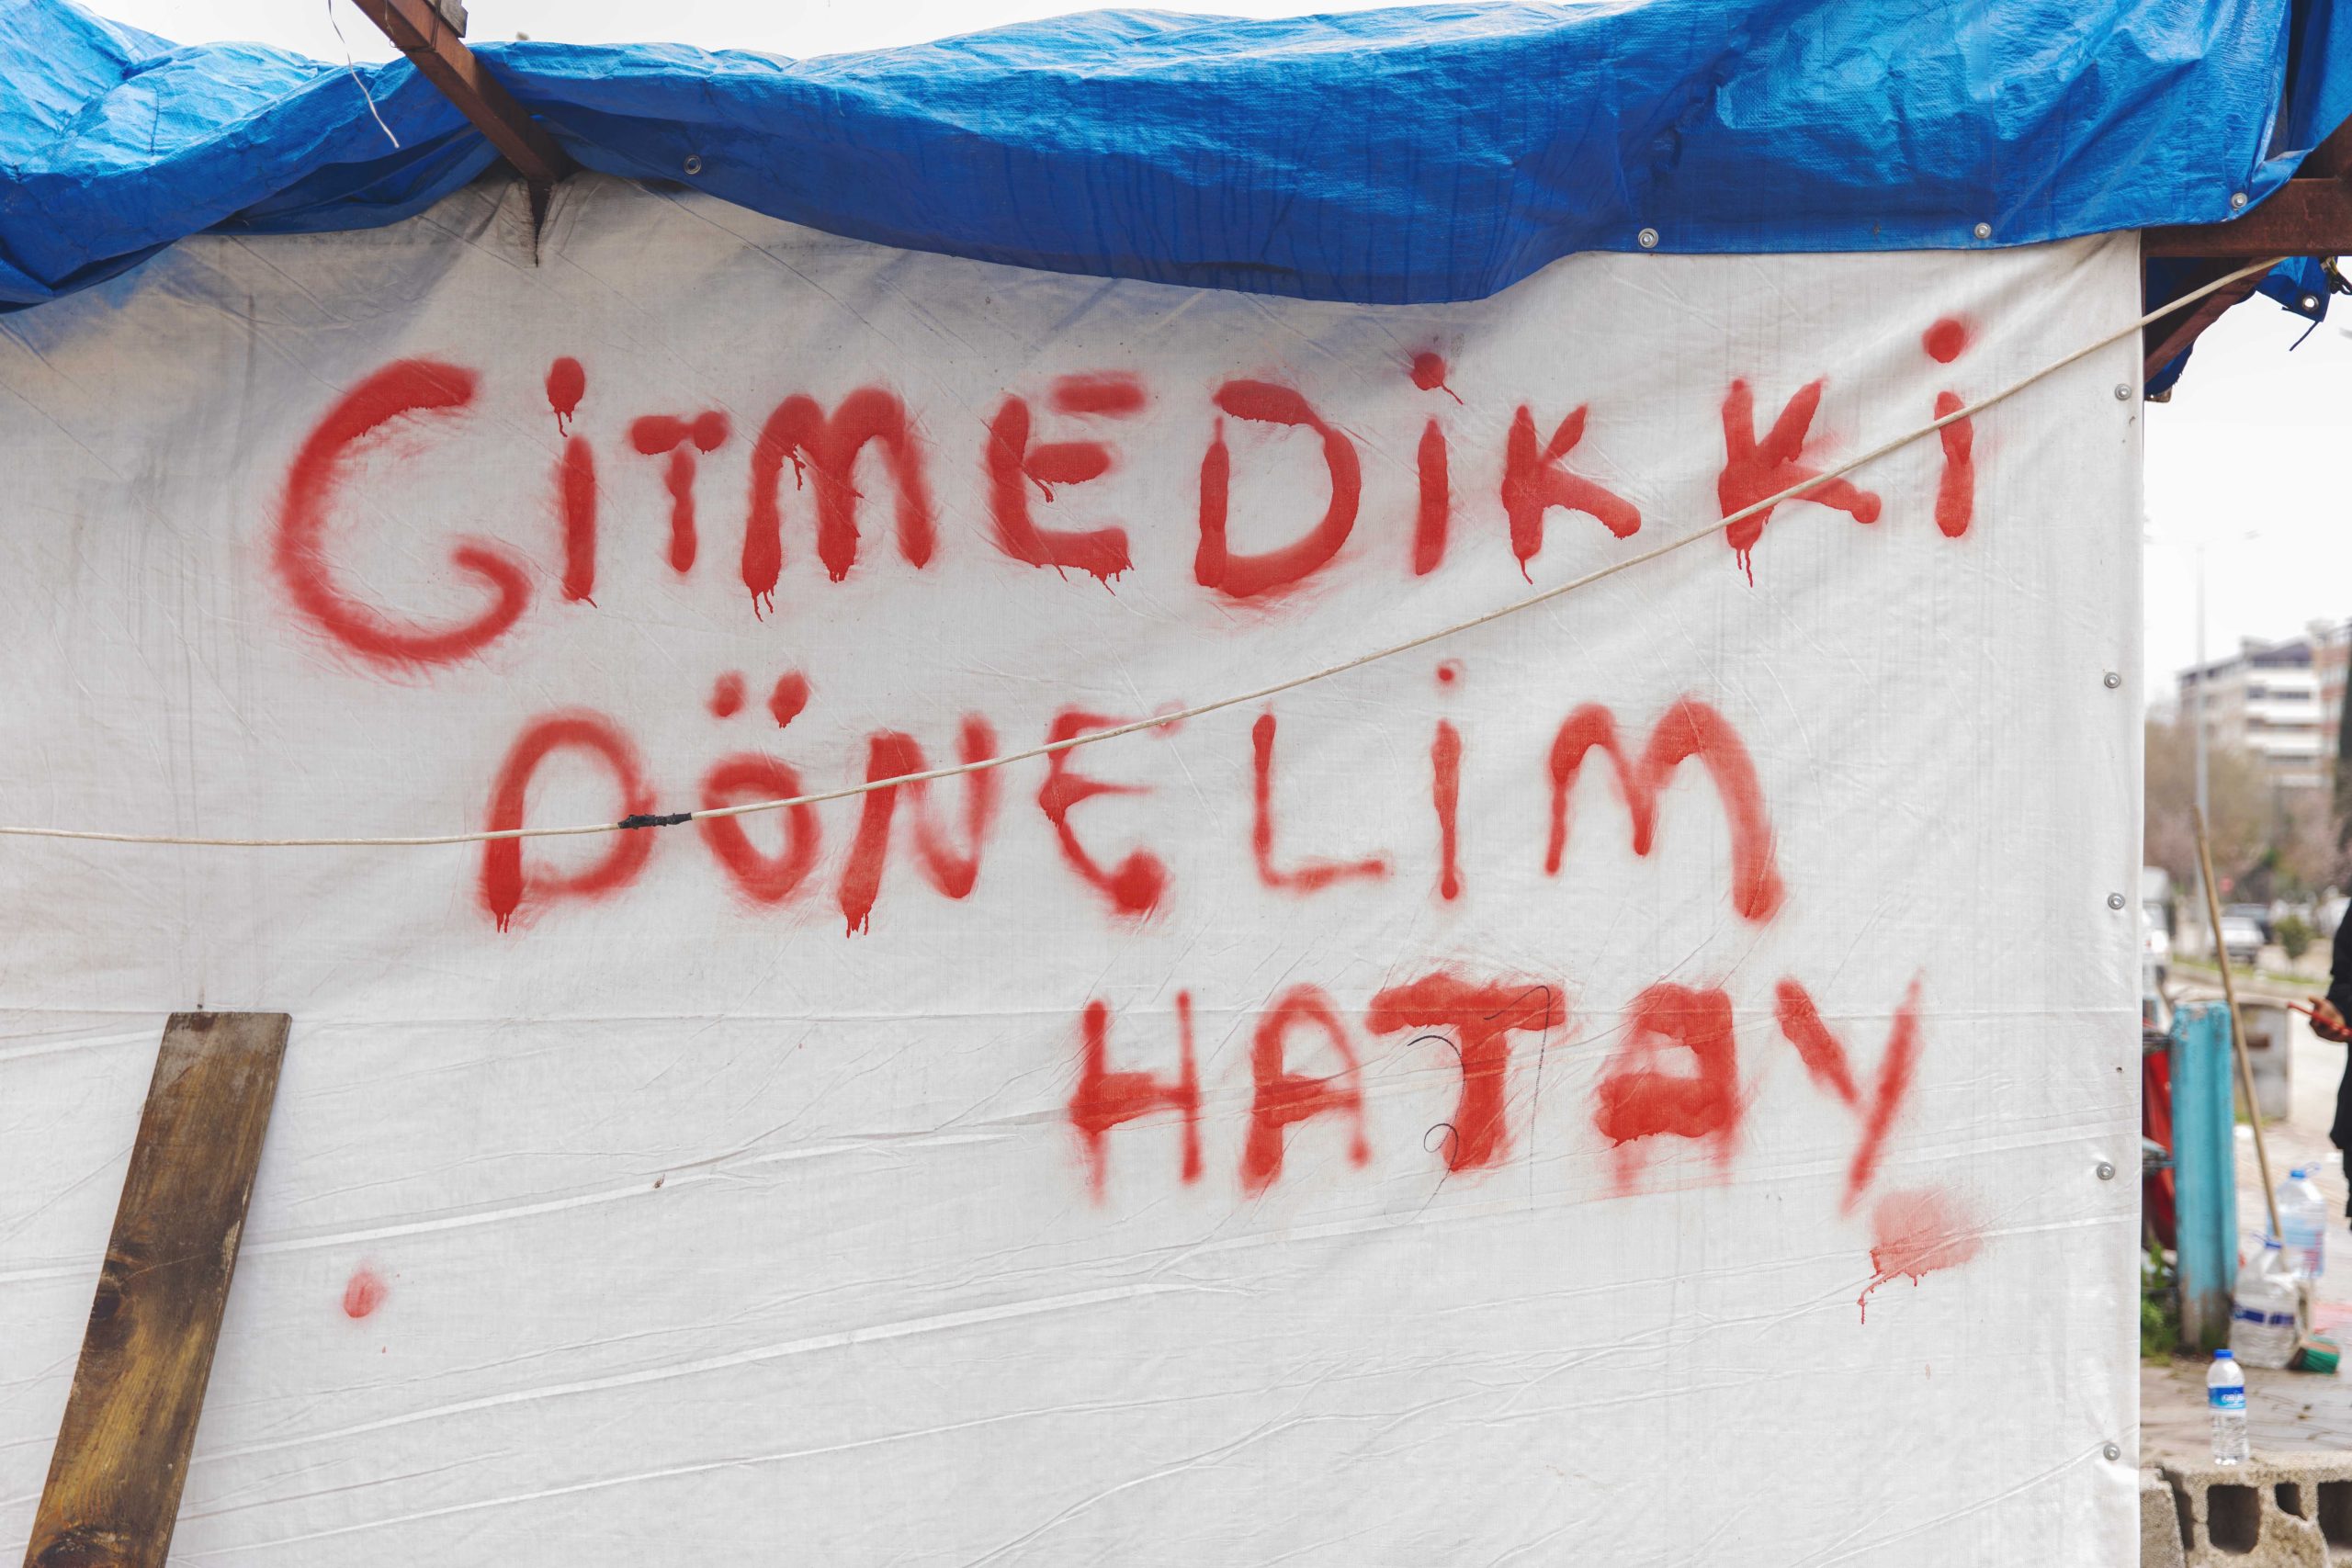 GİTMEDİK Kİ
DÖNELİM
HATAY